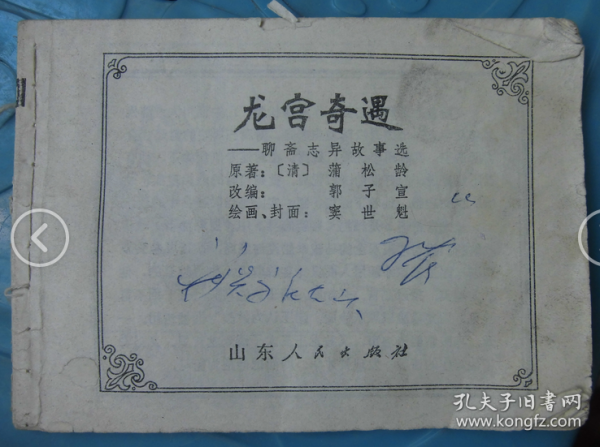 龙宫奇遇
——聊斋志异故事选
原著:〔清〕蒲松龄
改编: 郭子宣
绘画、封面: 窦世魁
山东人民出版社
孔夫子旧书网
www.kongfz.com